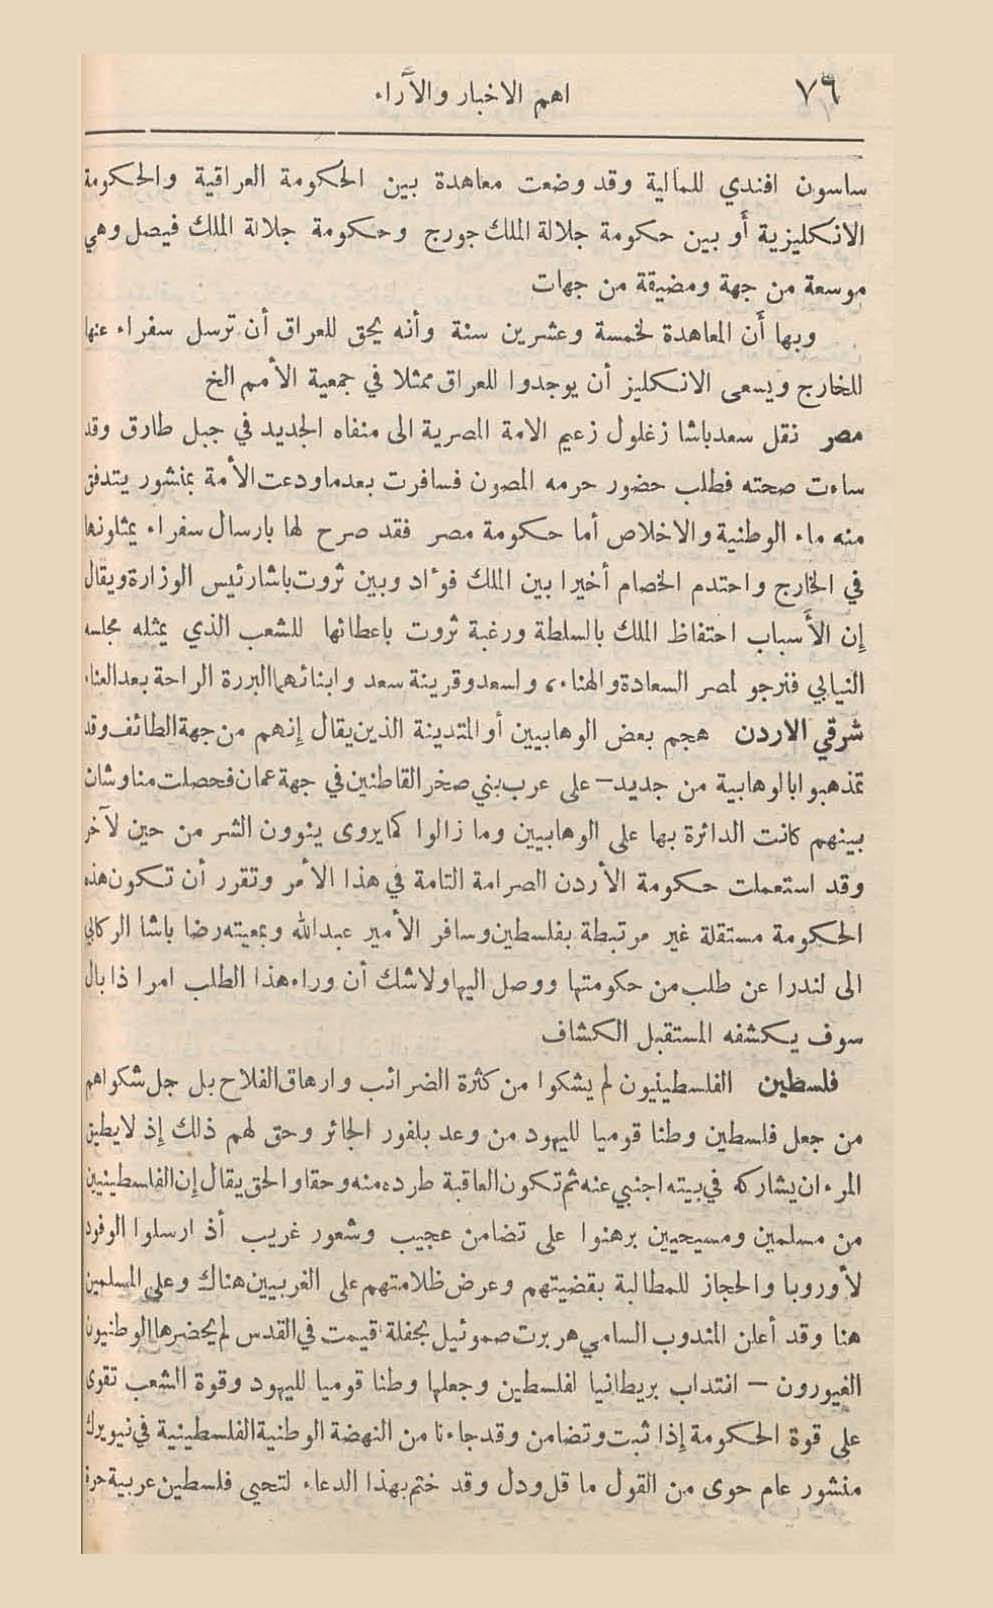 ٧٦
اهم الاخبار والآراء
ساسون افندي للمالية وقد وضعت معاهدة بين الحكومة العراقية والحكومة
الانكليزية أو بين حكومة جلالة الملك جورج وحكومة جلالة الملك فيصل وهي
موسعة من جهة ومضيقة من جهات
وبها أن المعاهدة لخمسة وعشرين سنة وأنه يحق للعراق أن ترسل سفراء عنها
للخارج ويسعى الانكليز أن يوجدوا للعراق ممثلا في جمعية الأمم الخ
مصر نقل سعدباشا زغلول زعيم الامة المصرية الى منفاه الجديد في جبل طارق وقد
ساءت صحته فطلب حضور حرمه المصون فسافرت بعدماودعت الأمة بمنشور يتدفق
منه ماء الوطنية والاخلاص أما حكومة مصر فقد صرح لها بارسال سفراء يمثلونها
في الخارج واحتدم الخصام أخيرا بين الملك فوءاد وبين ثروت باشارئيس الوزارة ويقال
إن الأسباب احتفاظ الملك بالسلطة ورغبة ثروت باعطائها للشعب الذي يمثله مجلسه
النيابي فنرجو لمصر السعادة والهناء، ولسعدوقرينة سعد وابنائهما البررة الراحة بعدالعناء
شرقي الاردن هجم بعض الوهابيين أو المتدينة الذين يقال إنهم من جهة الطائف وقد
تمذهبوا بالوهابية من جديد — على عرب بني صخر القاطنين في جهة عمان فحصلت مناوشات
بينهم كانت الدائرة بها على الوهابيين وما زالوا كما يروى ينوون الشر من حين لآخر
وقد استعملت حكومة الأردن الصرامة التامة في هذا الأمر وتقرر أن تكون هذه
الحكومة مستقلة غير مرتبطة بفلسطين وسافر الأمير عبدالله وبمعيته رضا باشا الركابي
الى لندرا عن طلب من حكومتها ووصل اليها ولاشك أن وراء هذا الطلب امرا ذا بال
سوف يكشفه المستقبل الكشاف
فلسطين الفلسطينيون لم يشكوا من كثرة الضرائب وارهاق الفلاح بل جل شكواهم
من جعل فلسطين وطنا قوميا لليهود من وعد بلفور الجائر وحق لهم ذلك إذ لايطيق
المرء ان يشاركه في بيته اجنبي عنه ثم تكون العاقبة طرده منه وحقا والحق يقال إن الفلسطينيين
من مسلمين ومسيحيين برهنوا على تضامن عجيب وشعور غريب أذ ارسلوا الوفود
لأوروبا والحجاز للمطالبة بقضيتهم وعرض ظلامتهم على الغربيين هناك وعلى المسلمين
هنا وقد أعلن المندوب السامي هربرت صموئيل بحفلة قيمت في القدس لم يحضرها الوطنيون
الغيورون — انتداب بريطانيا لفلسطين وجعلها وطنا قوميا لليهود وقوة الشعب تقوى
على قوة الحكومة إذا ثبت وتضامن وقدجاءنا من النهضة الوطنية الفلسطينية في نيويرك
منشور عام حوى من القول ما قل ودل وقد ختم بهذا الدعاء لتحيى فلسطين عربية حرة